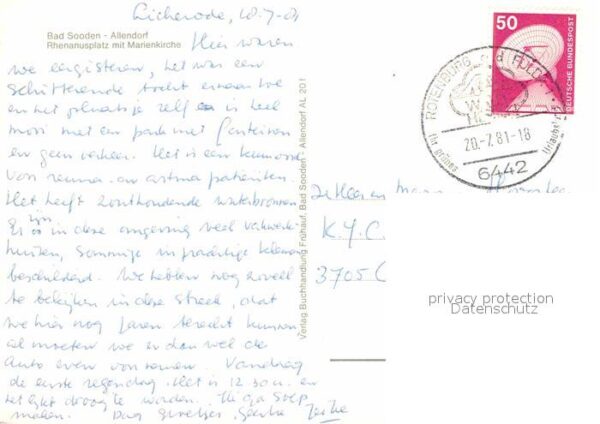 Licherode, 20-7-81
Bad Sooden - Allendorf
Rhenanusplatz mit Marienkirche
Hier waren
we eergisteren, het was een
schitterende tocht erheen. We
en het plaatsje zelf is heel
mooi met een park met fonteinen
en geen verkeer. Het is een kuuroord
voor reuma- en astma patienten.
Het heeft zouthoudende waterbronnen
Er zijn in deze omgeving veel vakwerk-
huizen, sommige in prachtige kleuren
beschilderd. We hebben nog zoveel
te bekijken in deze streek, dat
we hier nog jaren terecht kunnen
al moeten we er dan wel de
Auto even voor nemen. Vandaag
de eerste regendag. Het is 12.30 u. en
het lijkt droog te worden. Ik ga soep
maken. Dag groetjes,
Verlag Buchhandlung Frühauf, Bad Sooden - Allendorf AL 201
50
DEUTSCHE BUNDESPOST
ROTENBURG a d FULDA
20.-7.81-18
6442
De Heer en Mevr.
K.Y.C.
3705 C
privacy protection
Datenschutz